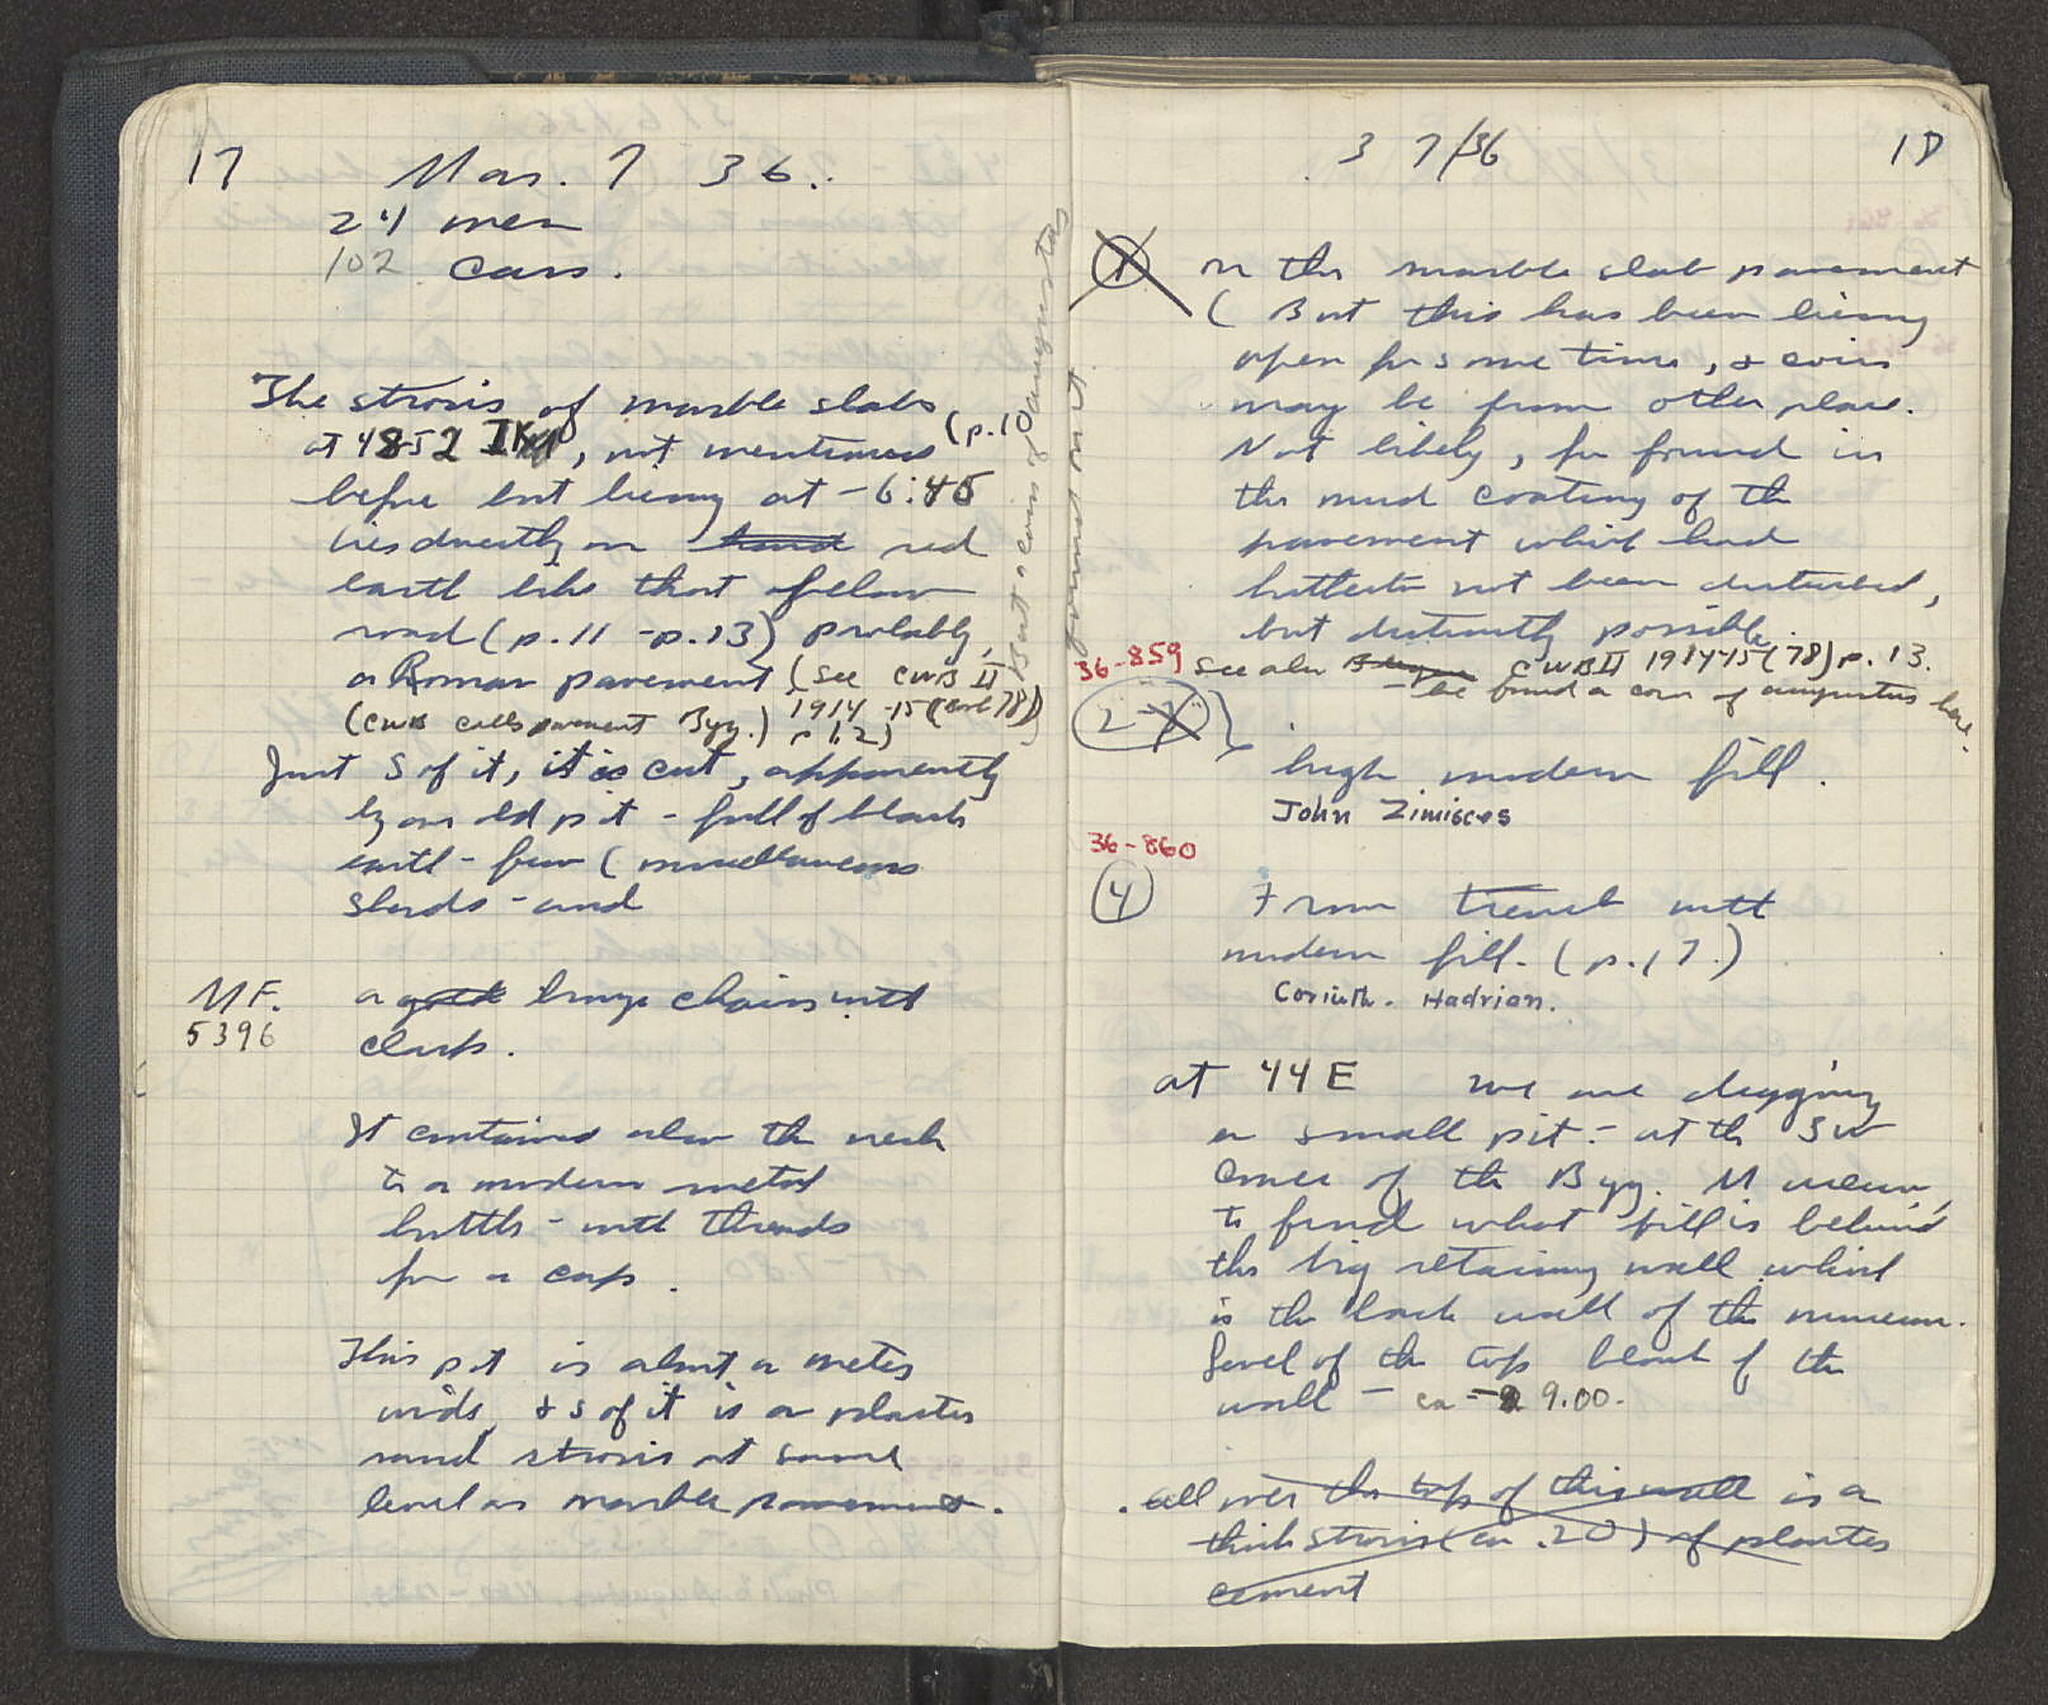 17 Mar. 7 36.
24 men
102 cars.
The strosis of marble slabs (p. 10
at 4852 , not mentioned
before but lieing at -6:45
lies directly on hard red
earth like that below
road (p. 11 - p. 13) probably
a Roman pavement (see CWB II
(CWB calls pavement Byz.) 1914-15 (Book 78)
p 12)
But a coin of augustus
found on it
Just S of it, it is cut, apparently
by an old pit - full of black
earth - few (miscellaneous
sherds - and
MF.
5396
a gold bronze chain with
clasp.
It contained also the neck
to a modern metal
bottle - with threads
for a cap.
This pit is about a meter
wide, & S of it is a plaster
sand strosis at same
level as marble pavement.
3 7/36 18
1 on the marble slab pavement
( But this has been lieing
open for some time, & coin
may be from other place.
Not likely, for found in
the mud coating of the
pavement which had
hitherto not been disturbed,
but distinctly possible.
36-859 see also CWB II 1914-15 (78) p. 13.
- he found a coin of augustus here.
2-3 }
high modern fill.
John Zimisces
36-860
4 From trench with
modern fill. (p. 17.)
Corinth. Hadrian.
at 44 E we are digging
a small pit - at the SW
corner of the Byz. Museum,
to find what fill is behind
the big retaining wall which
is the back wall of the museum.
Level of the top block of the
wall - ca - 9.00.
all over the top of this wall is a
thick strosis (ca .20) of plaster
cement